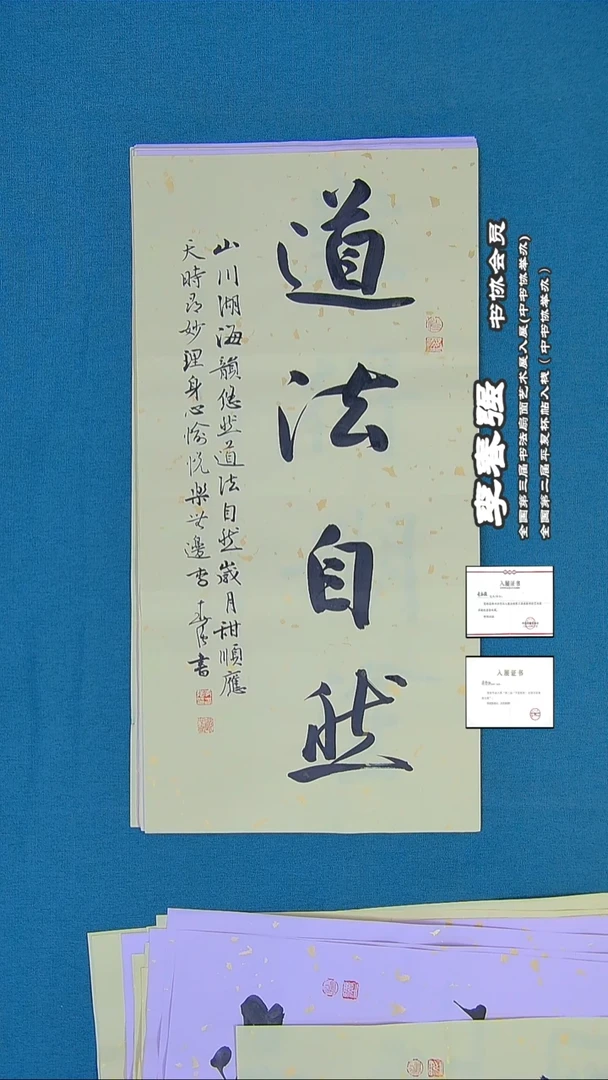 道法自然
山川湖海韻悠然道法自然歲月甜順應
天時尋妙理身心愉悦樂無邊李春强書
李春强 书协会员
全国第三届书法扇面艺术展入展(中书协举办)
全国第二届平复杯帖入视(中书协举办)
入展证书
入展证书